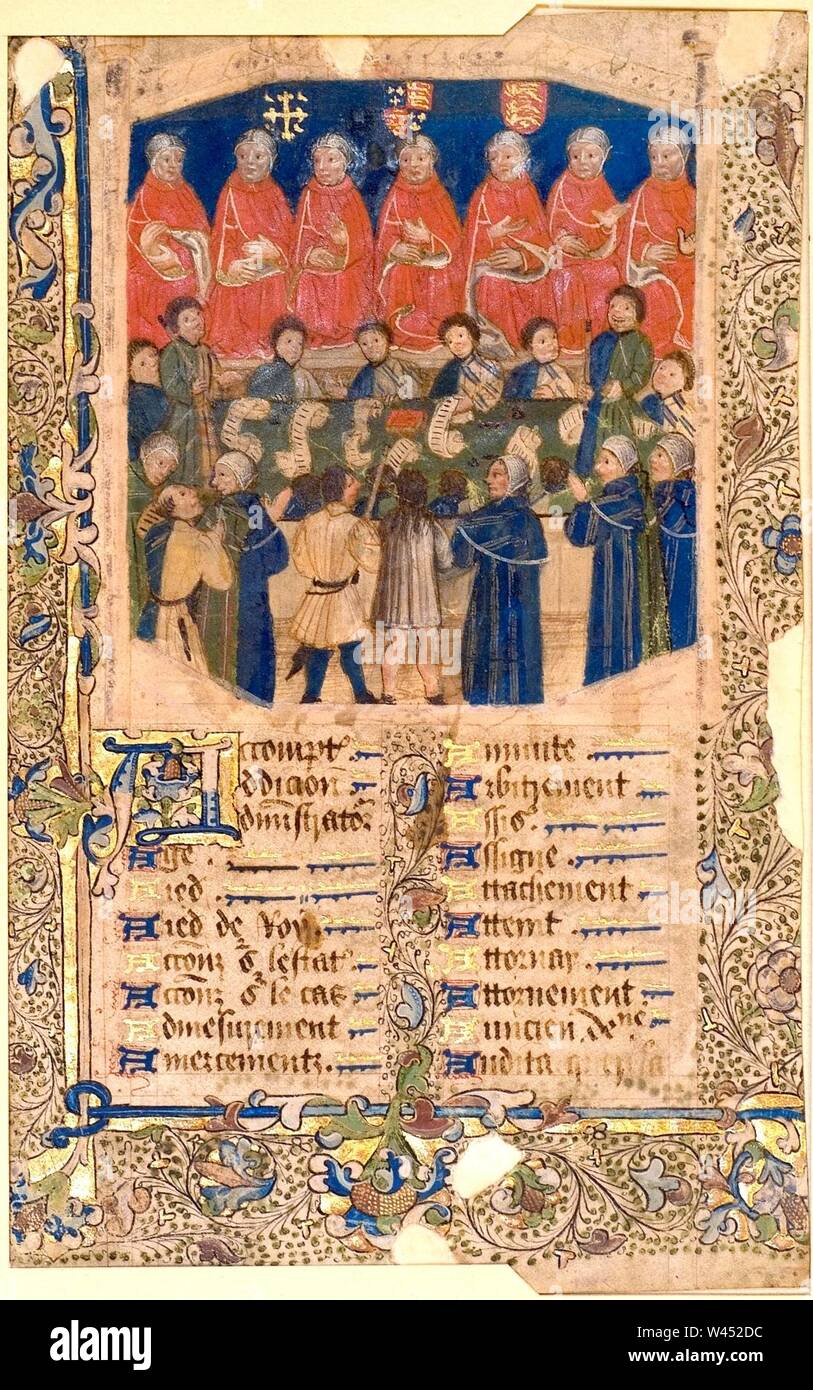 Accompt
Addicion
Administrator
Age
Aied
Aied de Roy
Accons lestat
Accons le cas
Admesurement
Amercementz
Annuite
Arbitrement
Assis
Assigne
Attachement
Atteint
Attornay
Attornement
Auncien
Audita
a
alamy
alamy stock photo
W452DC
www.alamy.com